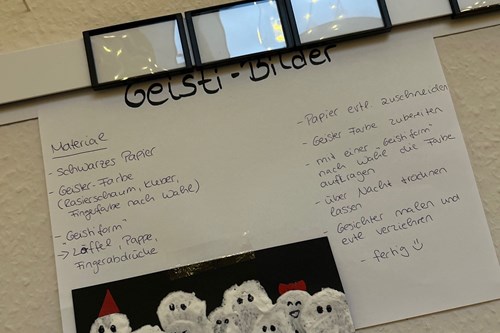 Geisti-Bilder
Material
- schwarzes Papier
- Geister-Farbe
(Rasierschaum, Kleber,
Fingerfarbe nach Wahl)
- "Geistiform"
→ Löffel, Pappe,
Fingerabdrücke
- Papier evtl. zuschneiden
- Geister Farbe zubereiten
- mit einer "Geistiform"
nach Wahl die Farbe
auftragen
- über Nacht trocknen
lassen
- Gesichter malen und
evtl. verziehren
- fertig ☺